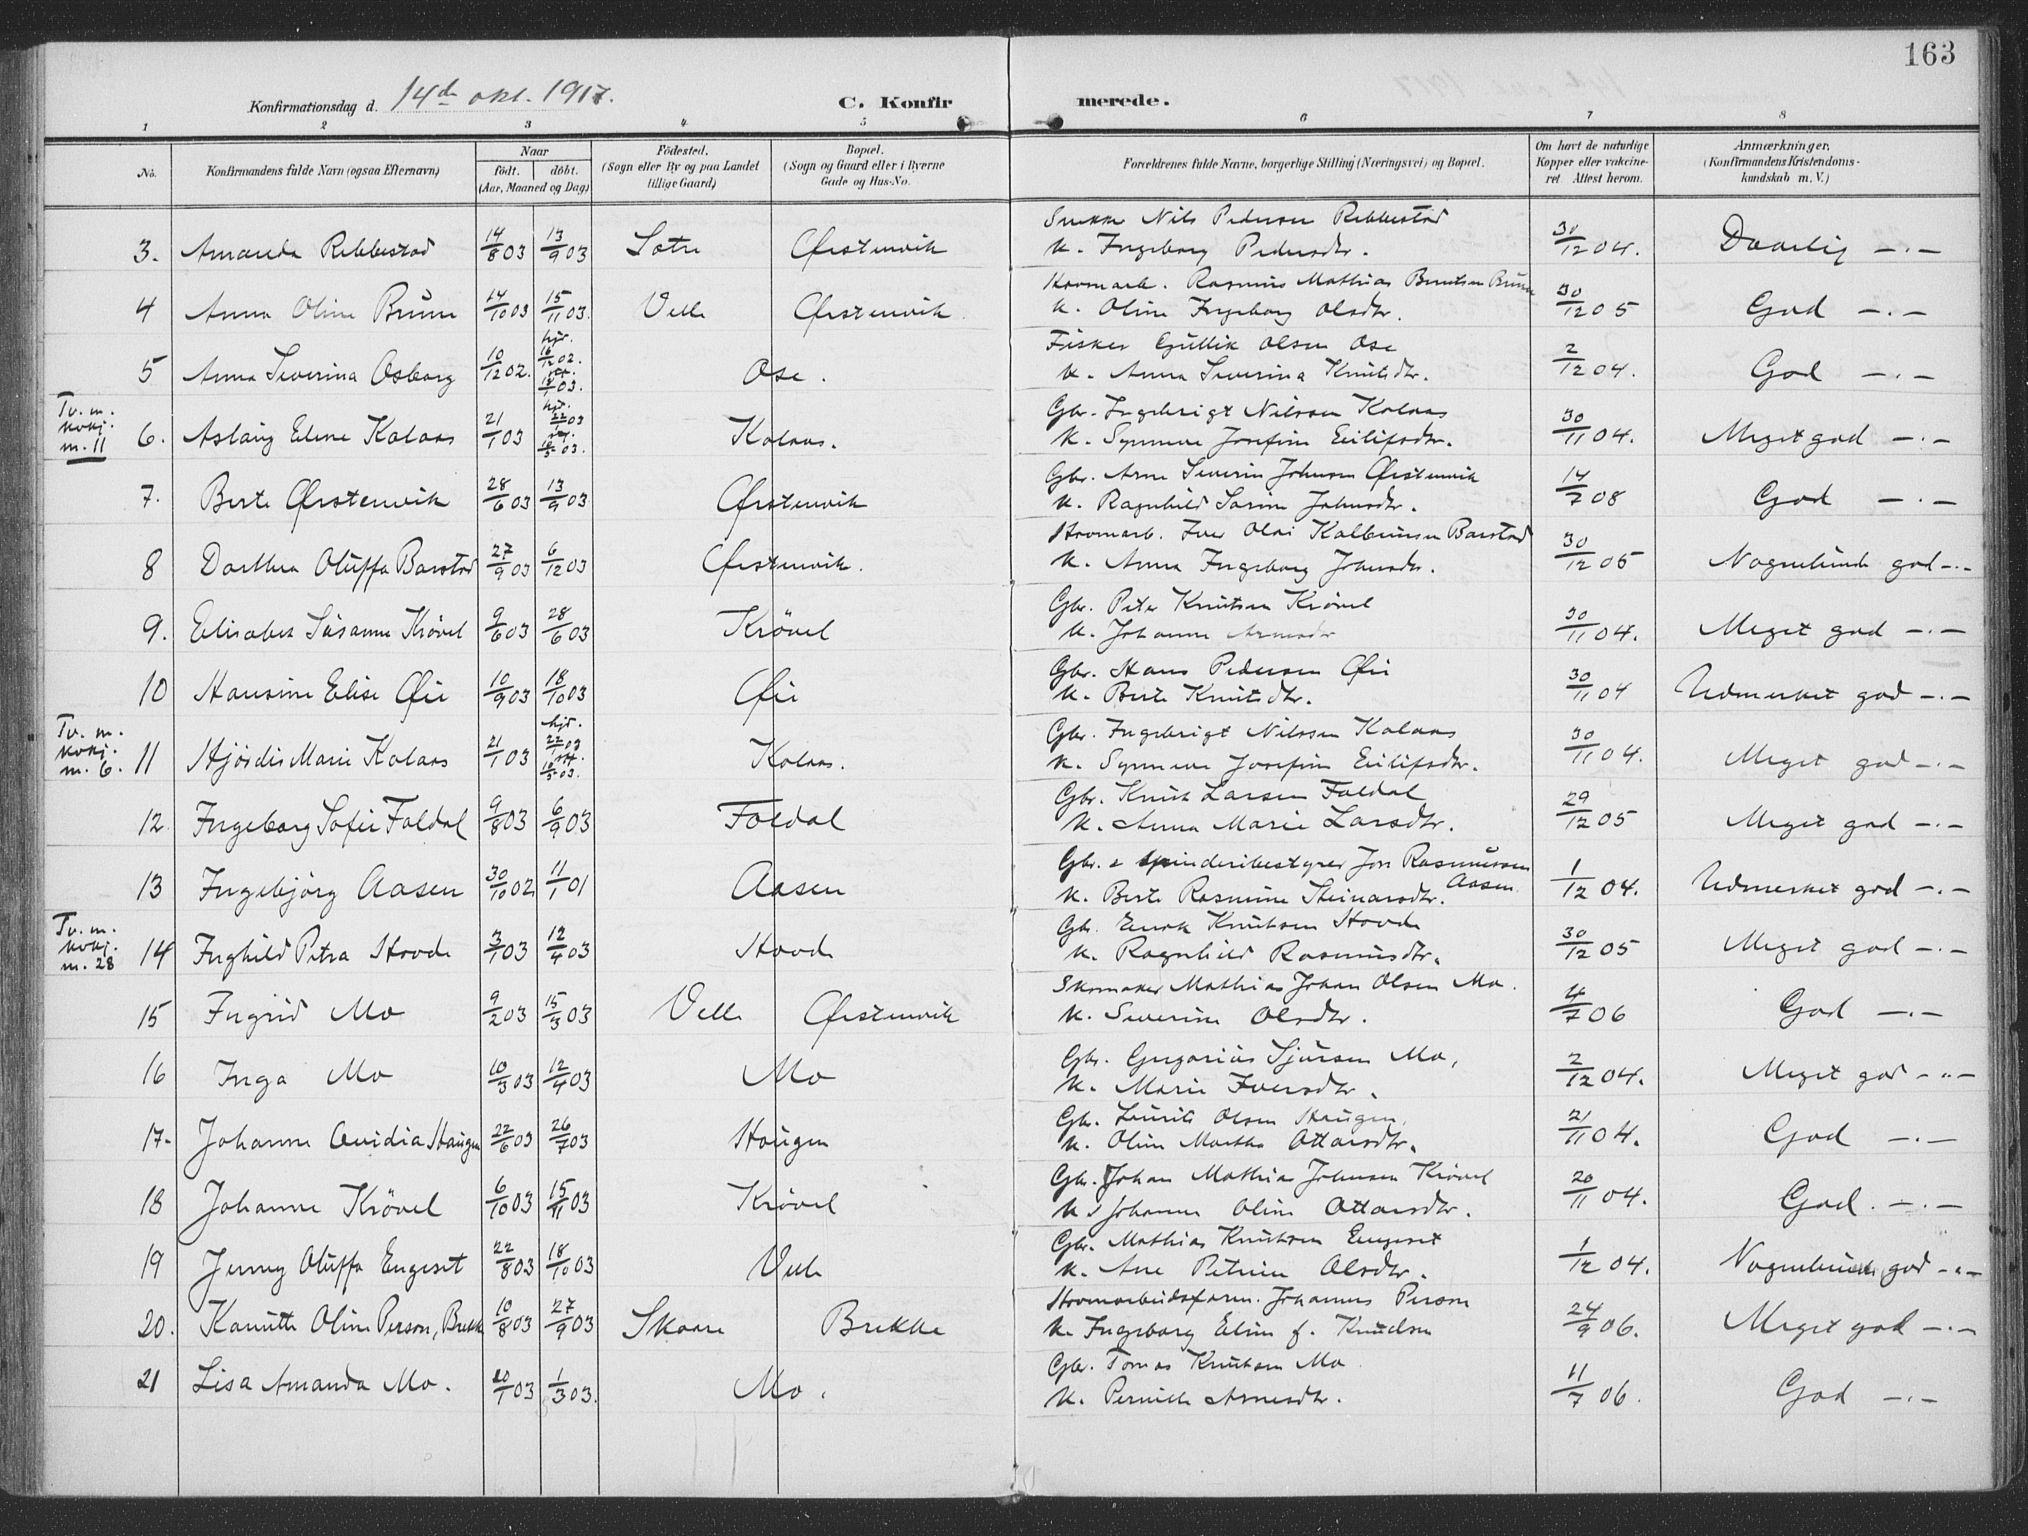 163
Konfirmationsdag d. 14de okt. 1917. C. Konfirmerede.
1 2 3 4 5 6 7 8
No. Konfirmandens fulde Navn (ogsaa Efternavn) Naar født. døbt. (Aar, Maaned og Dag) Fødested. (Sogn eller By og paa Landet tillige Gaard) Bopæl. (Sogn og Gaard eller i Byerne Gade og Hus-No. Forældrenes fulde Navne, borgerlige Stilling (Næringsvei) og Bopæl. Om havt de naturlige Kopper eller vakcineret. Attest herom. Anmærkninger, (Konfirmandens Kristendomskundskab m. V.)
3. Amanda Rebbestad 14/8 03 13/9 03 Sætre Ørstenvik Snekker Nils Pedersen Rebbestad 30/12 04. Daarlig -.-
K. Ingeborg Pedersdtr.
4 Anna Oline Brune 14/10 03 15/11 03. Velle Ørstenvik Hovmarb. Rasmus Mathias Berntsen Brune 30/12 05 God -.-
K. Oline Ingeborg Olsdtr.
5 Anna Severina Osborg 10/12 02. hjd. 16/12 02. 18/1 03. Ose. Fisker Gullik Olsen Ose 2/12 04. God -.-
K. Anna Severina Knutsdtr.
Tv. m. nokj. m. 11
6. Aslaug Eline Kolaas 21/1 03 hjd. 22/1 03 10/5 03. Kolaas. Gbr. Ingebrigt Nilssen Kolaas 30/11 04. Meget god -.-
K. Synneve Josefine Eilifsdtr.
7. Berte Ørstenvik 28/6 03 13/9 03 Ørstenvik Gbr. Arne Severin Johnsen Ørstenvik 14/7 08 God -.-
K. Ragnhild Sarine Johnsdtr.
8 Dorthea Oluffa Barstad 27/9 03 6/12 03 Ørstenvik. Hovmarb. Iver Olai Kolbeinsen Barstad 30/12 05 Nogenlunde god -.-
K. Anna Ingeborg Johnsdtr.
9. Elisabet Susanne Krøvel 9/6 03 28/6 03 Krøvel Gbr. Peter Knutsen Krøvel 30/11 04. Meget god -.-
K. Johanne Arnesdtr
10 Hansine Elise Øie 10/9 03 18/10 03 Øie Gbr. Hans Pedersen Øie 30/11 04 Udmerket god -.-
K. Berte Knutsdtr.
Tv. m. nokj. m. 6.
11 Hjørdis Marie Kolaas 21/1 03 hjd. 22/1 03 10/5 03. Kolaas. Gbr. Ingebrigt Nilssen Kolaas 30/11 04. Meget god -.-
K. Synneve Josefine Eilifsdtr.
12. Ingeborg Sofie Foldal 9/8 03 6/9 03 Foldal Gbr. Knut Larsen Foldal 29/12 05 Meget god -.-
K. Anna Marie Larsdtr.
13 Ingebjørg Aasen 30/10 02 11/1 01 Aasen Gbr. & spinderibestyrer Jon Rasmussen Aasen 1/12 04. Udmerket god -.-
K. Berte Rasmine Steinarsdtr.
Tv. m. nokj. m. 28
14 Inghild Petra Hovde 3/1 03 12/4 03 Hovde Gbr. Enok Knutsen Hovde 30/12 05 Meget god -.-
K. Ragnhild Rasmusdtr.
15 Ingrid Mo 9/2 03 15/3 03 Velle Ørstenvik Skomaker Mathias Johan Olsen Mo. 4/7 06 God -.-
K. Severine Olsdtr.
16 Inga Mo 10/3 03 12/4 03 Mo Gbr. Gregorius Sjursen Mo, 2/12 04. Meget god -.-
K. Marie Iversdtr.
17. Johanne Ovidia Haugen 22/6 03 26/7 03 Haugen Gbr. Laurits Olsen Haugen. 21/11 04. God -.-
K. Oline Martha Ottarsdtr.
18 Johanne Krøvel 6/10 03 15/11 03 Krøvel Gbr. Johan Mathias Johnsen Krøvel 20/11 04. God. -.-
K. Johanne Oline Ottarsdtr.
19 Jenny Oluffa Engeset 22/8 03 18/10 03 Velle Gbr. Mathias Knutsen Engeset 1/12 04. Nogenlunde god -.-
K. Ane Petrine Olsdtr.
20. Kanutte Oline Person, Brekke 10/8 03 27/9 03 Skaare Brekke Hovmarbeidsform. Johannes Person 24/9 06. Meget god -.-
K. Ingeborg Eline f. Knudsen
21 Lisa Amanda Mo. 20/1 03 1/3 03. Mo. Gbr. Tomas Knutsen Mo 11/7 06. God -.-
K. Pernille Arnesdtr.